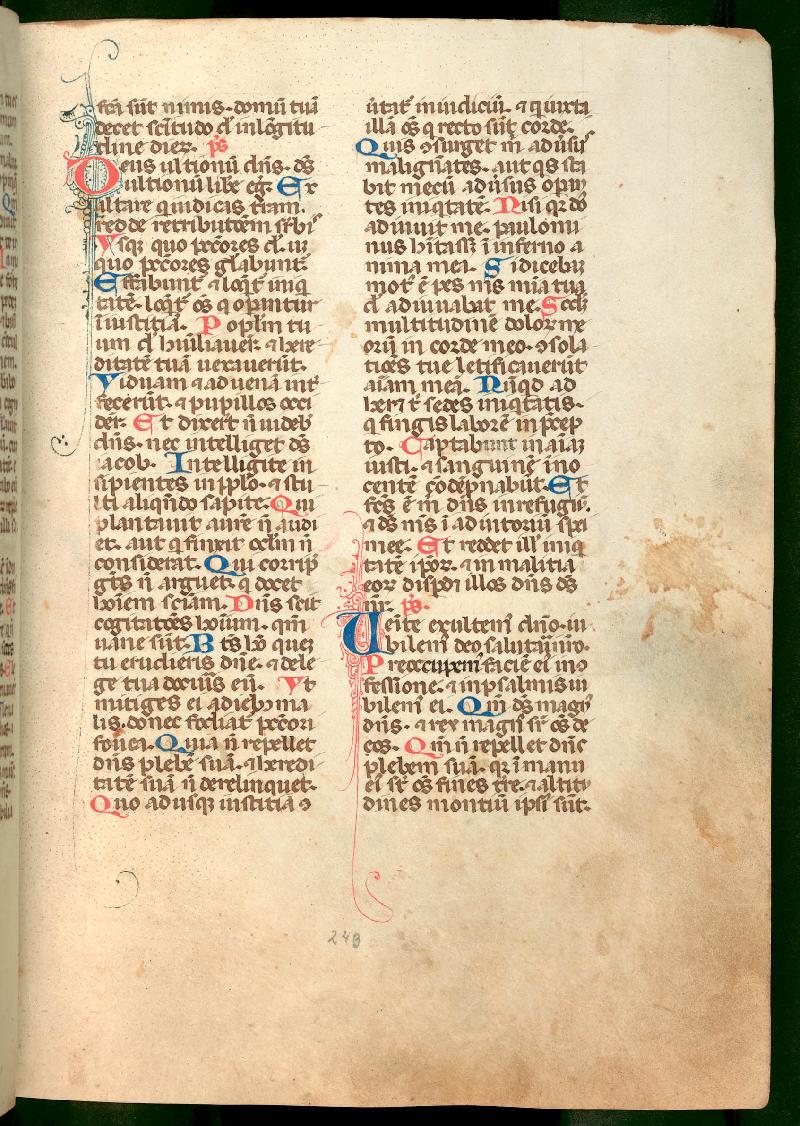 fc̄a sūt nimis. domū tuā
decet sc̄itudo d̄ in lōgitu
dine dieꝝ. ps̄
Deus ultionū dn̄s. ds̄
ultionū libe eḡ. Ex
altare qui iudicas tr̄am.
redde retributōem sr̄bis
Vsq; quo pc̄c̄ores d̄. us
quo pc̄c̄ores gl̄abunt̄.
Effabunt̄ & loqt̄ iniq
tatē. loqt̄ oēs q opantur
iniustitiā. Popl̄m tu
um d̄ humiliauer̄. & here
ditatē tuā uexauerūt.
Viduam & aduenā int̄
fecerūt. & pupillos occi
der̄. Et dixerūt n̄ uideb̄
dn̄s. nec intelliget ds̄
iacob. Intelligite in
sipientes in pplo. & stu
lti aliqn̄do sapite. Qui
plantauit aurē n̄ audi
et. aut q finxit oclm̄ n̄
considerat. Qui corrip̄
gēs n̄ arguet. q docet
hoīem sciām. Dn̄s scit
cogitatōes hoīum. qm̄
uane sūt. Bt̄s hō quez
tu erudieris dn̄e. & de le
ge tua docūis eū. Vt
mitiges ei a dieb; ma
lis. donec fodiat̄ pc̄c̄ori
fouea. Quia n̄ repellet
dn̄s plebē suā. & heredi
tatē suā n̄ derelinquet.
Quo adusq; iustitia ꝯ
ūtat̄ in iudiciū. & qui iuxta
illā oēs q recto sūt corde.
Quis ꝯsurget m̄ adūsus
malignātes. aut qs sta
bit mecū adūsus opan
tes iniqtatē. Nisi qr dn̄s
adiuuit me. paulomi
nus hītass; in inferno a
nima mea. Si dicebaz
mot̄ ē pes ms̄ mīa tua
dn̄e adiuuabat me. Scd̄z
multitudinē doloꝝ me
oꝝ in corde meo. ꝯsola
tiōes tue letificauerūt
aīam meā. Nūqd ad
heret t̄ sedes iniqtatis.
q fingis laborē in p̄cep
to. Captabunt in aīaz
iusti. & sanguinē ino
centē cōdēpnabūt. Et
fc̄s ē m̄ dn̄s in refugiū.
& ds̄ ms̄ in adiutoriū spei
mee. Et reddet ill̄ iniq
tatē ip̄oꝝ. & in malitia
eoꝝ dispdit illos dn̄s ds̄
nr̄. ps̄.
Uenite exultem̄ dn̄o. iu
bilem̄ deo salutari nr̄o.
Preoccupem̄ faciē ei ī ꝯ
fessione. & in psalmis iu
bilem̄ ei. Qm̄ ds̄ magn̄
dn̄s. & rex magn̄ sr̄ oēs de
eos. Qm̄ n̄ repellet dn̄s
plebem suā. qr in manu
ei st̄ oēs fines tr̄e. & altitu
dines montiū ipsi sūt.
243